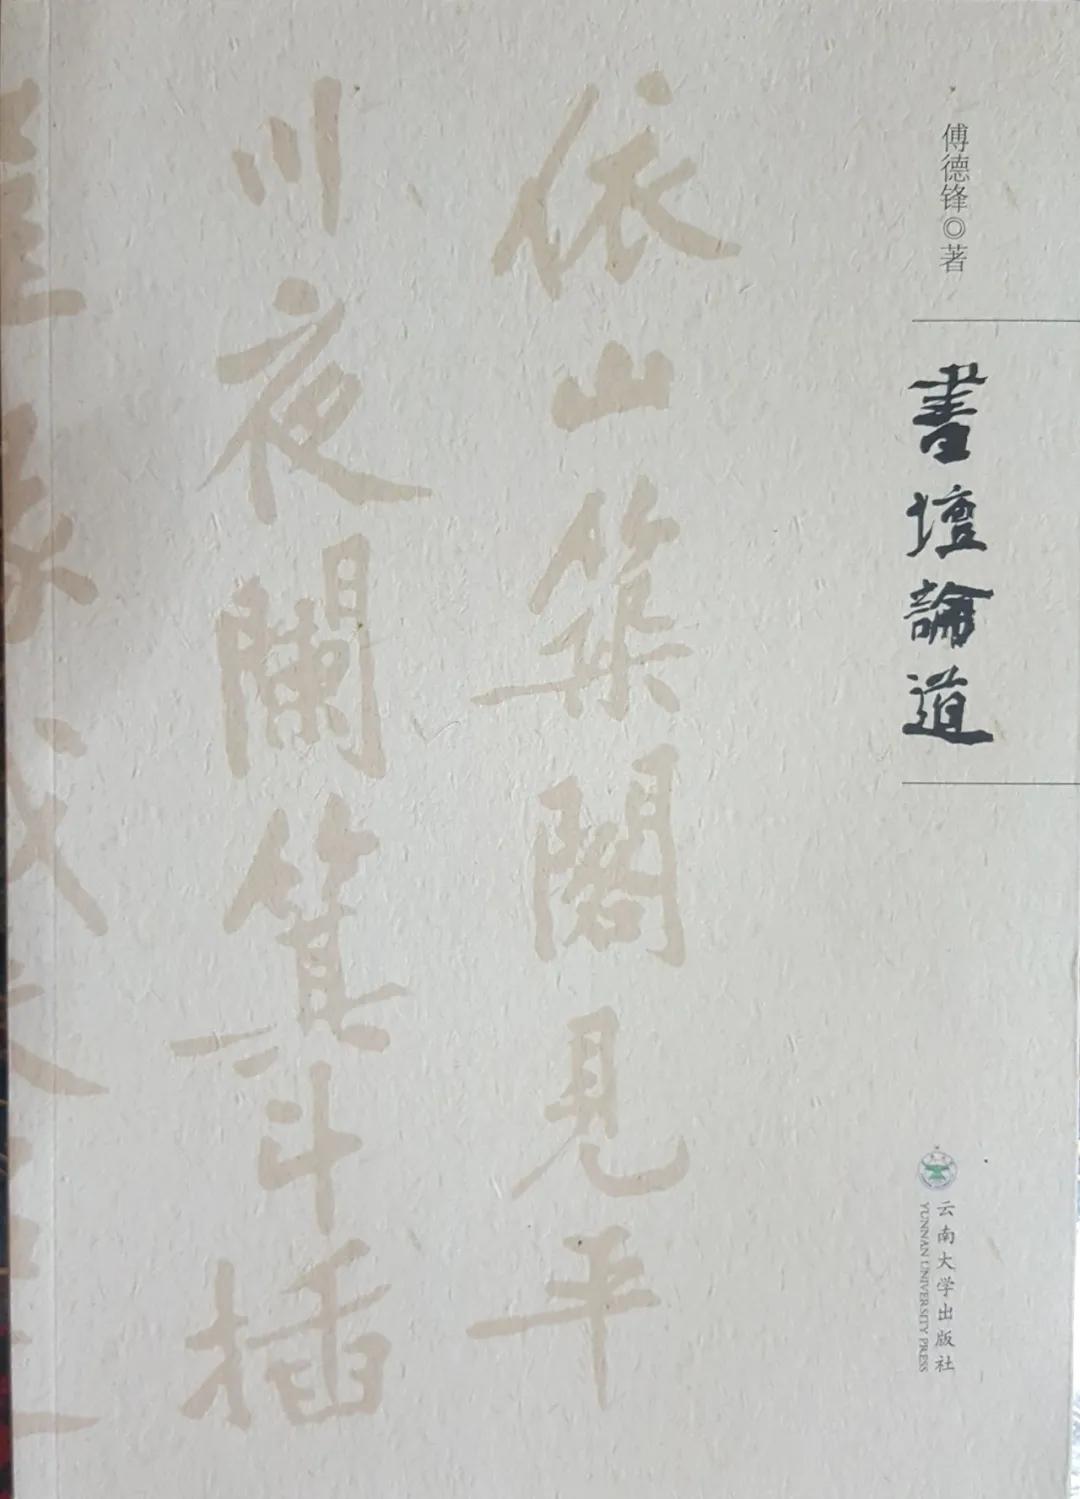 傅德锋◎著
書壇論道
云南大学出版社
YUNNAN UNIVERSITY PRESS
依山築閣見平
川夜闌箕斗插